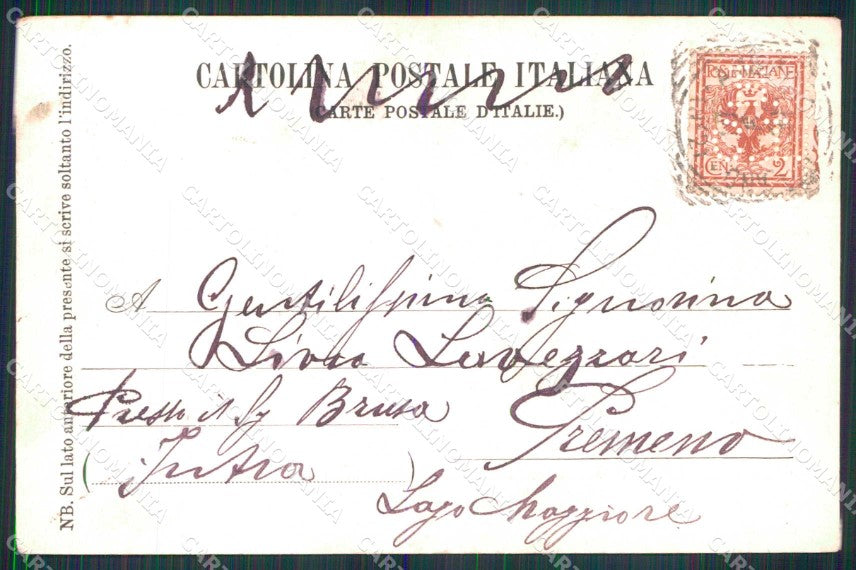 CARTOLINA POSTALE ITALIANA
(CARTE POSTALE D'ITALIE.)
POSTE ITALIANE
CEN. 2
NB. Sul lato anteriore della presente si scrive soltanto l'indirizzo.
A Gentilissima Signorina
Livia Lavezzari
Presso il Sig Brusa
Premeno
(Intra)
Lago Maggiore
CARTOLINOMANIA